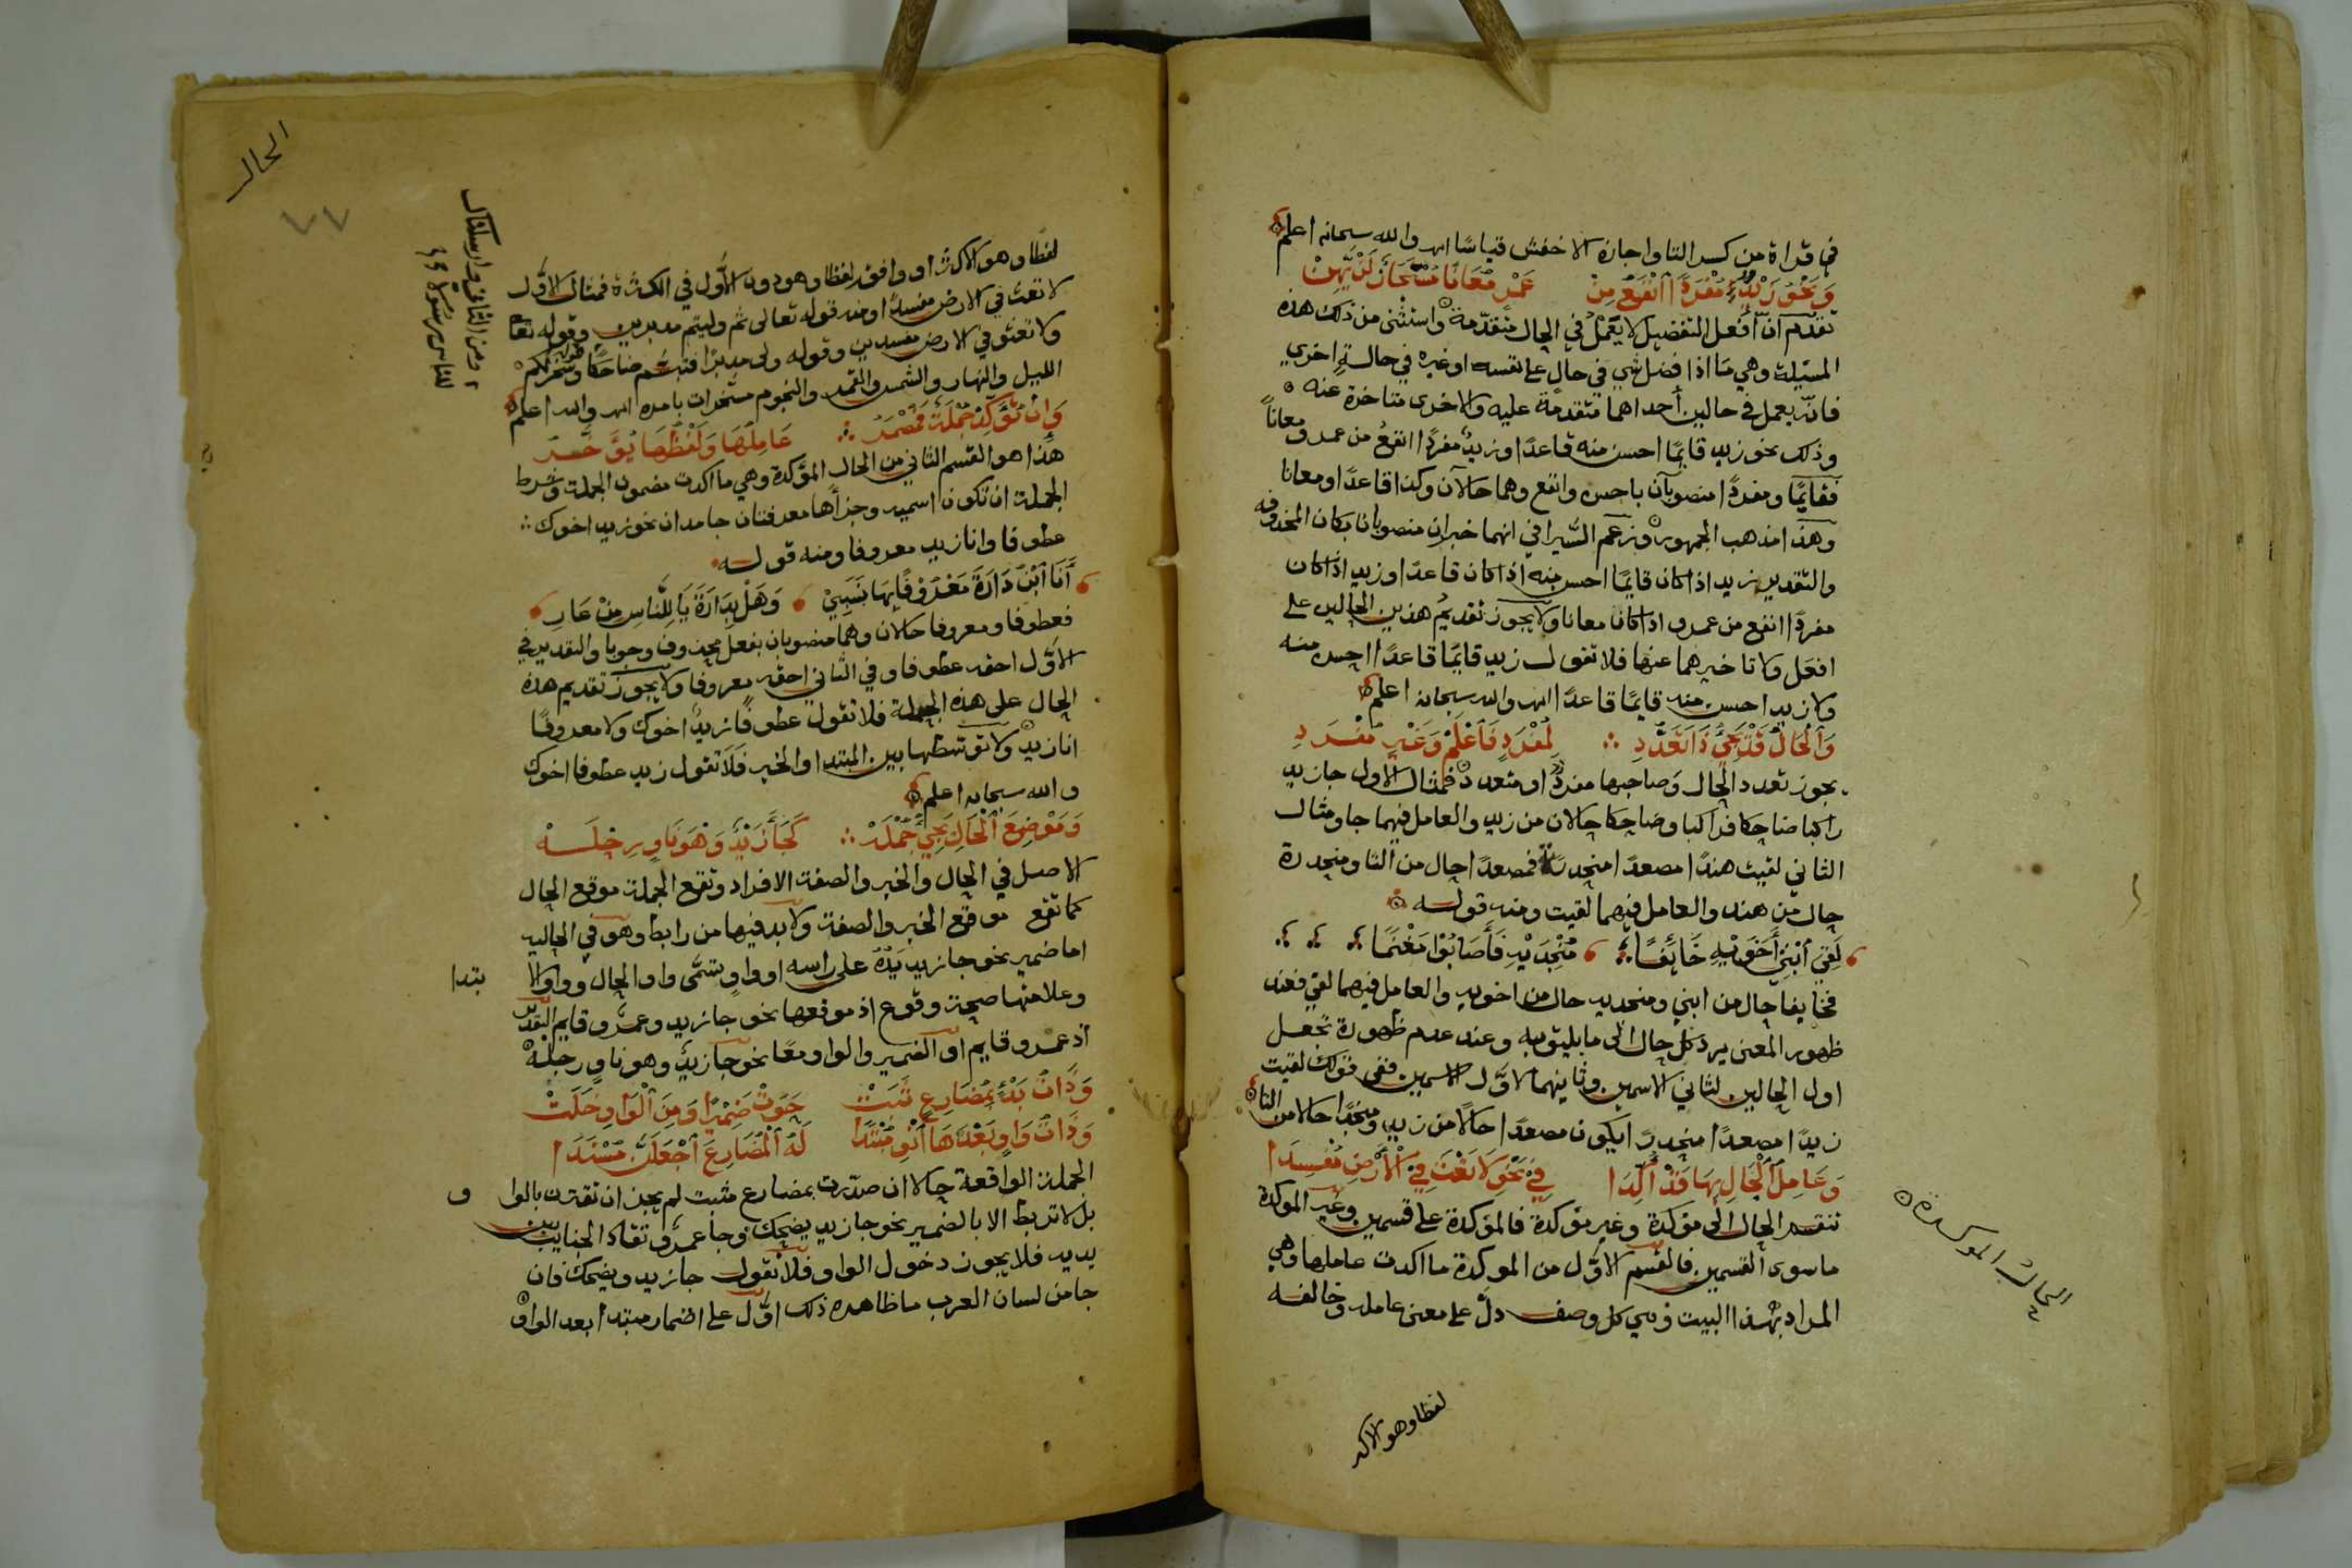 في قراة من كسر التا واجازه الاخفش قياسا اهـ والله سبحانه اعلم
وَنَحْوُ زَيْدٌ مُفْرَدًا اَنْفَعُ مِنْ عَمْرٍو مُعَانًا مُسْتَجَازٌ لَنْ يَهِنْ
تقدم انّ افعل التفضيل لا يعمل في الحال متقدّمة واستثنى من ذلك هذه
المسئلة وهي ما اذا فضل شي في حال على نفسه او غيره في حالة اخرى
فانّه يعمل في حالين أحداهما متقدمة عليه والاخرى متاخرة عنه
وذلك نحو زيد قايمًا احسن منه قاعدًا وزيدٌ مفردًا انفعُ من عمرو معاناً
فقايمًا ومفردًا منصوبان باحسن وانفع وهما حالان وكذا قاعدًا ومعانا
وهذا مذهب الجمهور وزعم السّيرافي انهما خبران منصوبان بكان المحذوفه
والتقدير زيد اذا كان قايمًا احسن منه اذا كان قاعدًا وزيد اذا كان
مفردًا انفع من عمرو اذا كان معانا ولا يجوز تقديمُ هذين الحالين على
افعل ولا تاخيرهما عنها فلا تقول زيد قايمًا قاعدًا احسن منه
ولا زيد احسن منه قايمًا قاعدًا اهـ والله سبحانه اعلم
وَالْحَالُ قَدْ يَجِيُ ذَا تَعَدُّدِ ∴ لِمُفْرَدٍ فَاعْلَمْ وَغَيْرِ مُفْرَدِ
يجوز تعدد الحال وصاحبها مفردٌ او متعدد فمثال الاول جا زيد
راكبا ضاحكا فراكبا وضاحكا حالان من زيد والعامل فيهما جا ومثال
الثاني لقيت هندًا مصعدًا منحدرة فمصعدًا حال من التا ومنحدرة
حال من هند والعامل فيهما لقيت ومنه قوله
لَقِيَ ابْنِيْ أَخَوَيْهِ خَائِفًا مُنْجِدَيْهِ فَأَصَابُوْا مَغْنَمًا
فخايفا حال من ابني ومنجديه حال من اخويه والعامل فيهما لقي فعند
ظهور المعنى يرد كل حال الى ما يليق به وعند عدم ظهوره تجعل
اول الحالين لثاني الاسمين وثانيهما لاوّل الاسمين ففي قولك لقيت
زيدًا مصعدًا منحدرًا يكون مصعدًا حالا من زيد ومنحدرًا حالا من التا
وَعَامِلُ الْحَالِ بِهَا قَدْ اُكِّدَا فِيْ نَحْوِ لَا تَعْثَ فِيْ الْأَرْضِ مُفْسِدَا
تنقسم الحال الى مؤكدة وغير مؤكدة فالمؤكدة على قسمين وغير الموكدة
ما سوى القسمين فالقسم الاوّل من الموكدة ما اكدت عاملها وهي
المراد بهذا البيت وهي كل وصف دلّ على معنى عامله وخالفه
الحال الموكدة
لفظا وهو الاكثر
الحال
٧٧
لفظا وهو الاكثر او وافقه لفظا وهو دون الاوّل في الكثرة فمثال الاوّل
لا تعث في الارض مفسدًا ومنه قوله تعالى ثم وليتم مدبرين وقوله تعا
ولا تعثو في الارض مفسدين وقوله ولى مدبرًا فتبسّم ضاحكًا وسخر لكم
الليل والنهار والشمس والقمر والنجوم مسخرات بامره اهـ والله اعلم
ومن الثاني وارسلناك
للناس رسولا
وَاِنْ تُؤَكِّدْ جُمْلَةً فَمُضْمَرُ ∴ عَامِلُهَا وَلَفْظُهَا يُؤَخَّرُ
هذا هو القسم الثاني من الحال المؤكدة وهي ما اكدت مضمون الجملة وشرط
الجملة ان تكون اسميه وجزأها معرفتان جامدان نحو زيد اخوك
عطوفا وانا زيد معروفا ومنه قوله
أَنَا ابْنُ دَارَةَ مَعْرُوْفًا بِهَا نَسَبِيْ وَهَلْ بِدَارَةَ يَا لِلنَّاسِ مِنْ عَارِ
فعطوفا ومعروفا حالان وهما منصوبان بفعل محذوف وجوبا والتقدير في
الاوّل احقه عطوفا وفي الثاني احق معروفا ولا يجوز تقديم هذه
الحال على هذه الجملة فلا تقول عطوفًا زيدٌ اخوك ولا معروفًا
انا زيد ولا توسّطها بين المبتدا والخبر فلا تقول زيد عطوفا اخوك
والله سبحانه اعلم
وَمَوْضِعَ الْحَالِ يَجِيُ جُمْلَهْ ∴ كَجَأَ زَيْدٌ وَهْوَ نَاوٍ رِحْلَهْ
الاصل في الحال والخبر والصفة الافراد وتقع الجملة موقع الحال
كما تقع موقع الخبر والصفة ولا بد فيها من رابط وهو في الحاليه
اما ضمير نحو جا زيد يَدُهُ على راسه او واو وتسمّى واو الحال وواو الا بتدا
وعلامتها صحة وقوع اذ موقعها نحو جا زيد وعمرو قايم التقدير
اذ عمرو قايم او الضمير والواو معًا نحو جا زيد وهو ناوٍ رحلهْ
وَذَاتُ بَدْءٍ بِمُضَارِعٍ ثَبَتْ حَوَتْ ضَمِيْرًا وَمِنَ الْوَاوِ خَلَتْ
وَذَاتُ وَاوٍ بَعْدَهَا انْوِ مُبْتَدَا لَهُ الْمُضَارِعَ اجْعَلَنَّ مُسْنَدَا
الجملة الواقعة حالا ان صدّرت بمضارع مثبت لم يجز ان تقترن بالوا و
بل لا تربط الا بالضمير نحو جا زيد يضحك وجا عمرو تقاد الجنايب بين
يديه فلا يجوز دخول الواو فلا تقول جا زيد ويضحك فان
جا من لسان العرب ما ظاهره ذلك اوّل على اضمار مبتدأ بعد الواو